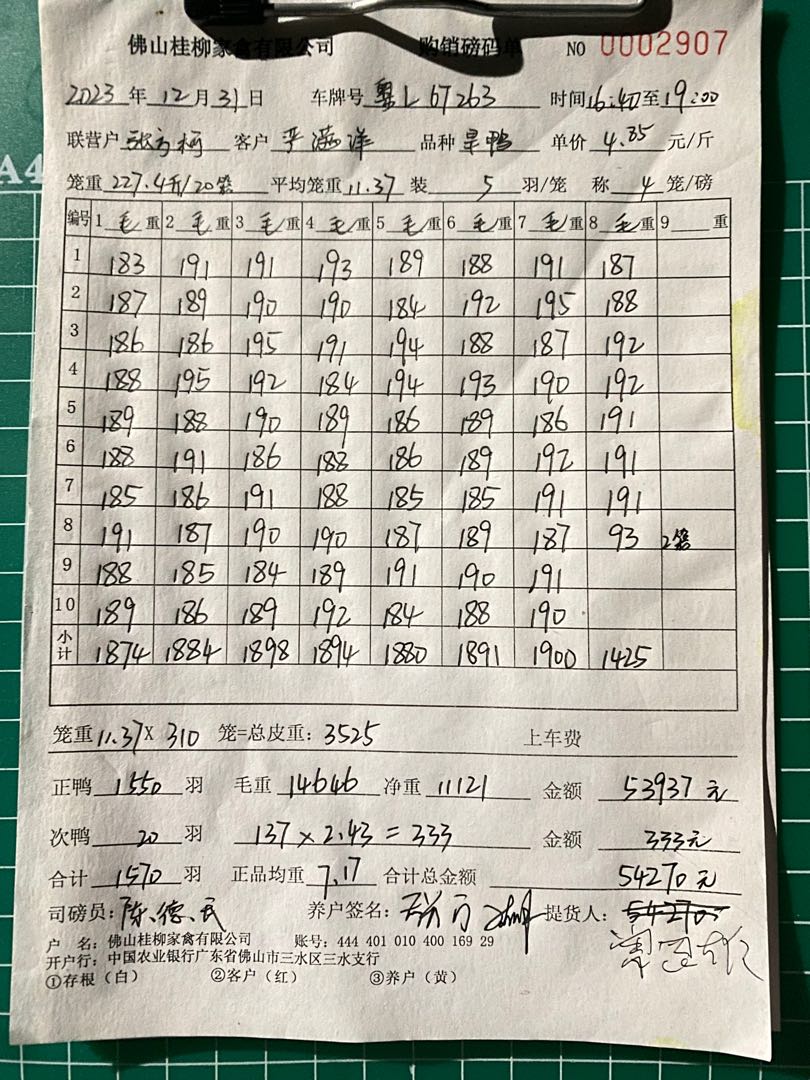 佛山桂柳家禽有限公司 购销磅码单 NO 0002907
2023年12月31日 车牌号 粤L67263 时间16:40至19:00
联营户 客户 严满洋 品种 旱鸭 单价 4.85 元/斤
笼重 227.4斤/20笼 平均笼重 11.37 装 5 羽/笼 称 4 笼/磅
编号 1 毛 重 2 毛 重 3 毛 重 4 毛 重 5 毛 重 6 毛 重 7 毛 重 8 毛 重 9 重
1 183 191 191 193 189 188 191 187
2 187 189 190 190 184 192 195 188
3 186 186 195 191 194 188 187 192
4 188 195 192 184 194 193 190 192
5 189 188 190 189 186 189 186 191
6 188 191 186 188 186 189 192 191
7 185 186 191 188 185 185 191 191
8 191 187 190 190 187 189 187 93 2笼
9 188 185 184 189 191 190 191
10 189 186 189 192 184 188 190
小计 1874 1884 1898 1894 1880 1891 1900 1425
笼重11.37X 310 笼=总皮重：3525 上车费
正鸭 1550 羽 毛重 14646 净重 11121 金额 53937元
次鸭 20 羽 137×2.43=333 金额 333元
合计 1570 羽 正品均重 7.17 合计总金额 54270元
司磅员：陈德民 养户签名： 提货人：54270
户 名：佛山桂柳家禽有限公司 账号：444 401 010 400 169 29
开户行：中国农业银行广东省佛山市三水区三水支行
①存根（白） ②客户（红） ③养户（黄）